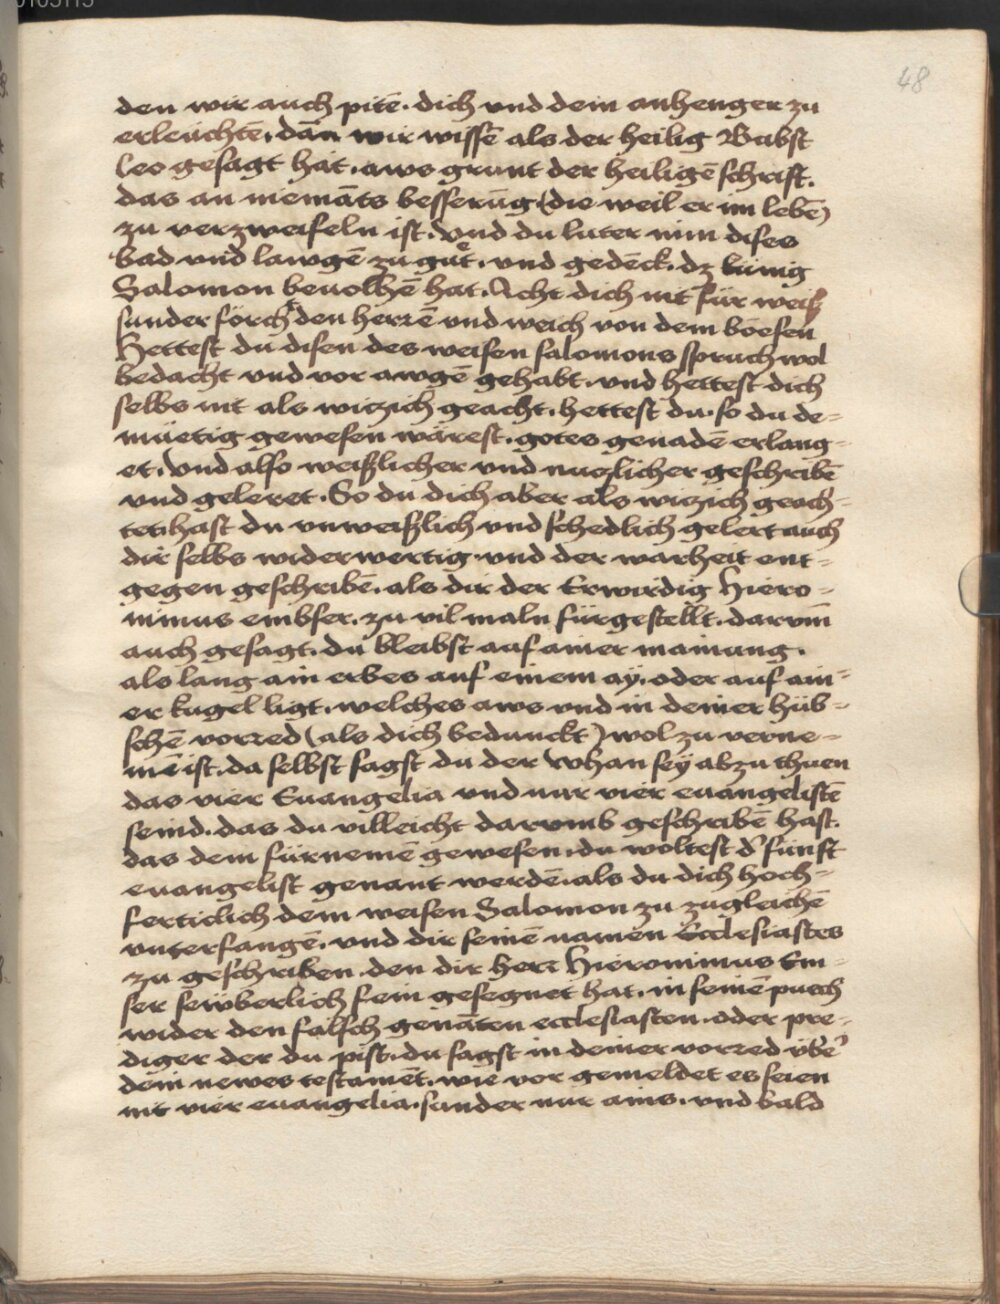 0105115
48
den wir auch pitē. dich vnd dein anhenger zu
erleuchtē. dān wir wissē als der heilig Babst
Leo gesagt hat. aws grunt der heiligē schrift.
das an niemāts besserūg (die weil er im lebē)
zu verzweifeln ist. Vnd du luter nim dises
bad vnd lawgē zu gůt. vnd gedēck. dz kunig
Salomon beuolhē hat. Acht dich nit für weiß
sunder förch den herrē vnd weich von dem boesen
Hettest du disen des weisen salomons spruch wol
bedacht vnd vor awgē gehabt. vnd hettest dich
selbs nit als witzich geacht. hettest du. so du de-
müetig gewesen wärest. gotes genadē erlang-
et. vnd also weißlicher vnd nuezlicher geschribē
vnd geleret. So du dich aber als witzich geach-
tet. hast du vnweißlich vnd schedlich gelert auch
dir selbs widerwertig. vnd der warheit ent-
gegen geschribē. als dir der Erwirdig Hiero-
nimus embser. zu vil maln fürgestellt. darvm
auch gesagt. du bleibst auf ainer mainung.
als lang ain erbes auf einem ay. oder auf ain-
er kugel ligt. welches aws vnd in deiner hüb-
schē vorred (als dich bedunckt) wol zu verne-
mē ist. da selbst sagst du der whan sey abzu thuen
das vier Euangelia vnd nur vier euangelistē
seind. das du villeicht darvmb geschribē hast.
das dem fürnemē gewesen. du woltest d' fünft
euangelist genant werdē. als du dich hoch-
ferticlich dem weisen Salomon zu zugleichē
vnterfangē. vnd dir seinē namen Ecclesiastes
zu geschriben. den dir herr Hieronimus Em-
ser sewberlich fein gesegnet hat. in seinē puech
wider den falsch genāten ecclesiasten. oder pre-
diger der du pist. du sagst in deiner vorred vbe'
dein newes testamēt. wie vor gemeldet es seien
nit vier euangelia. sunder nur ains. vnd bald